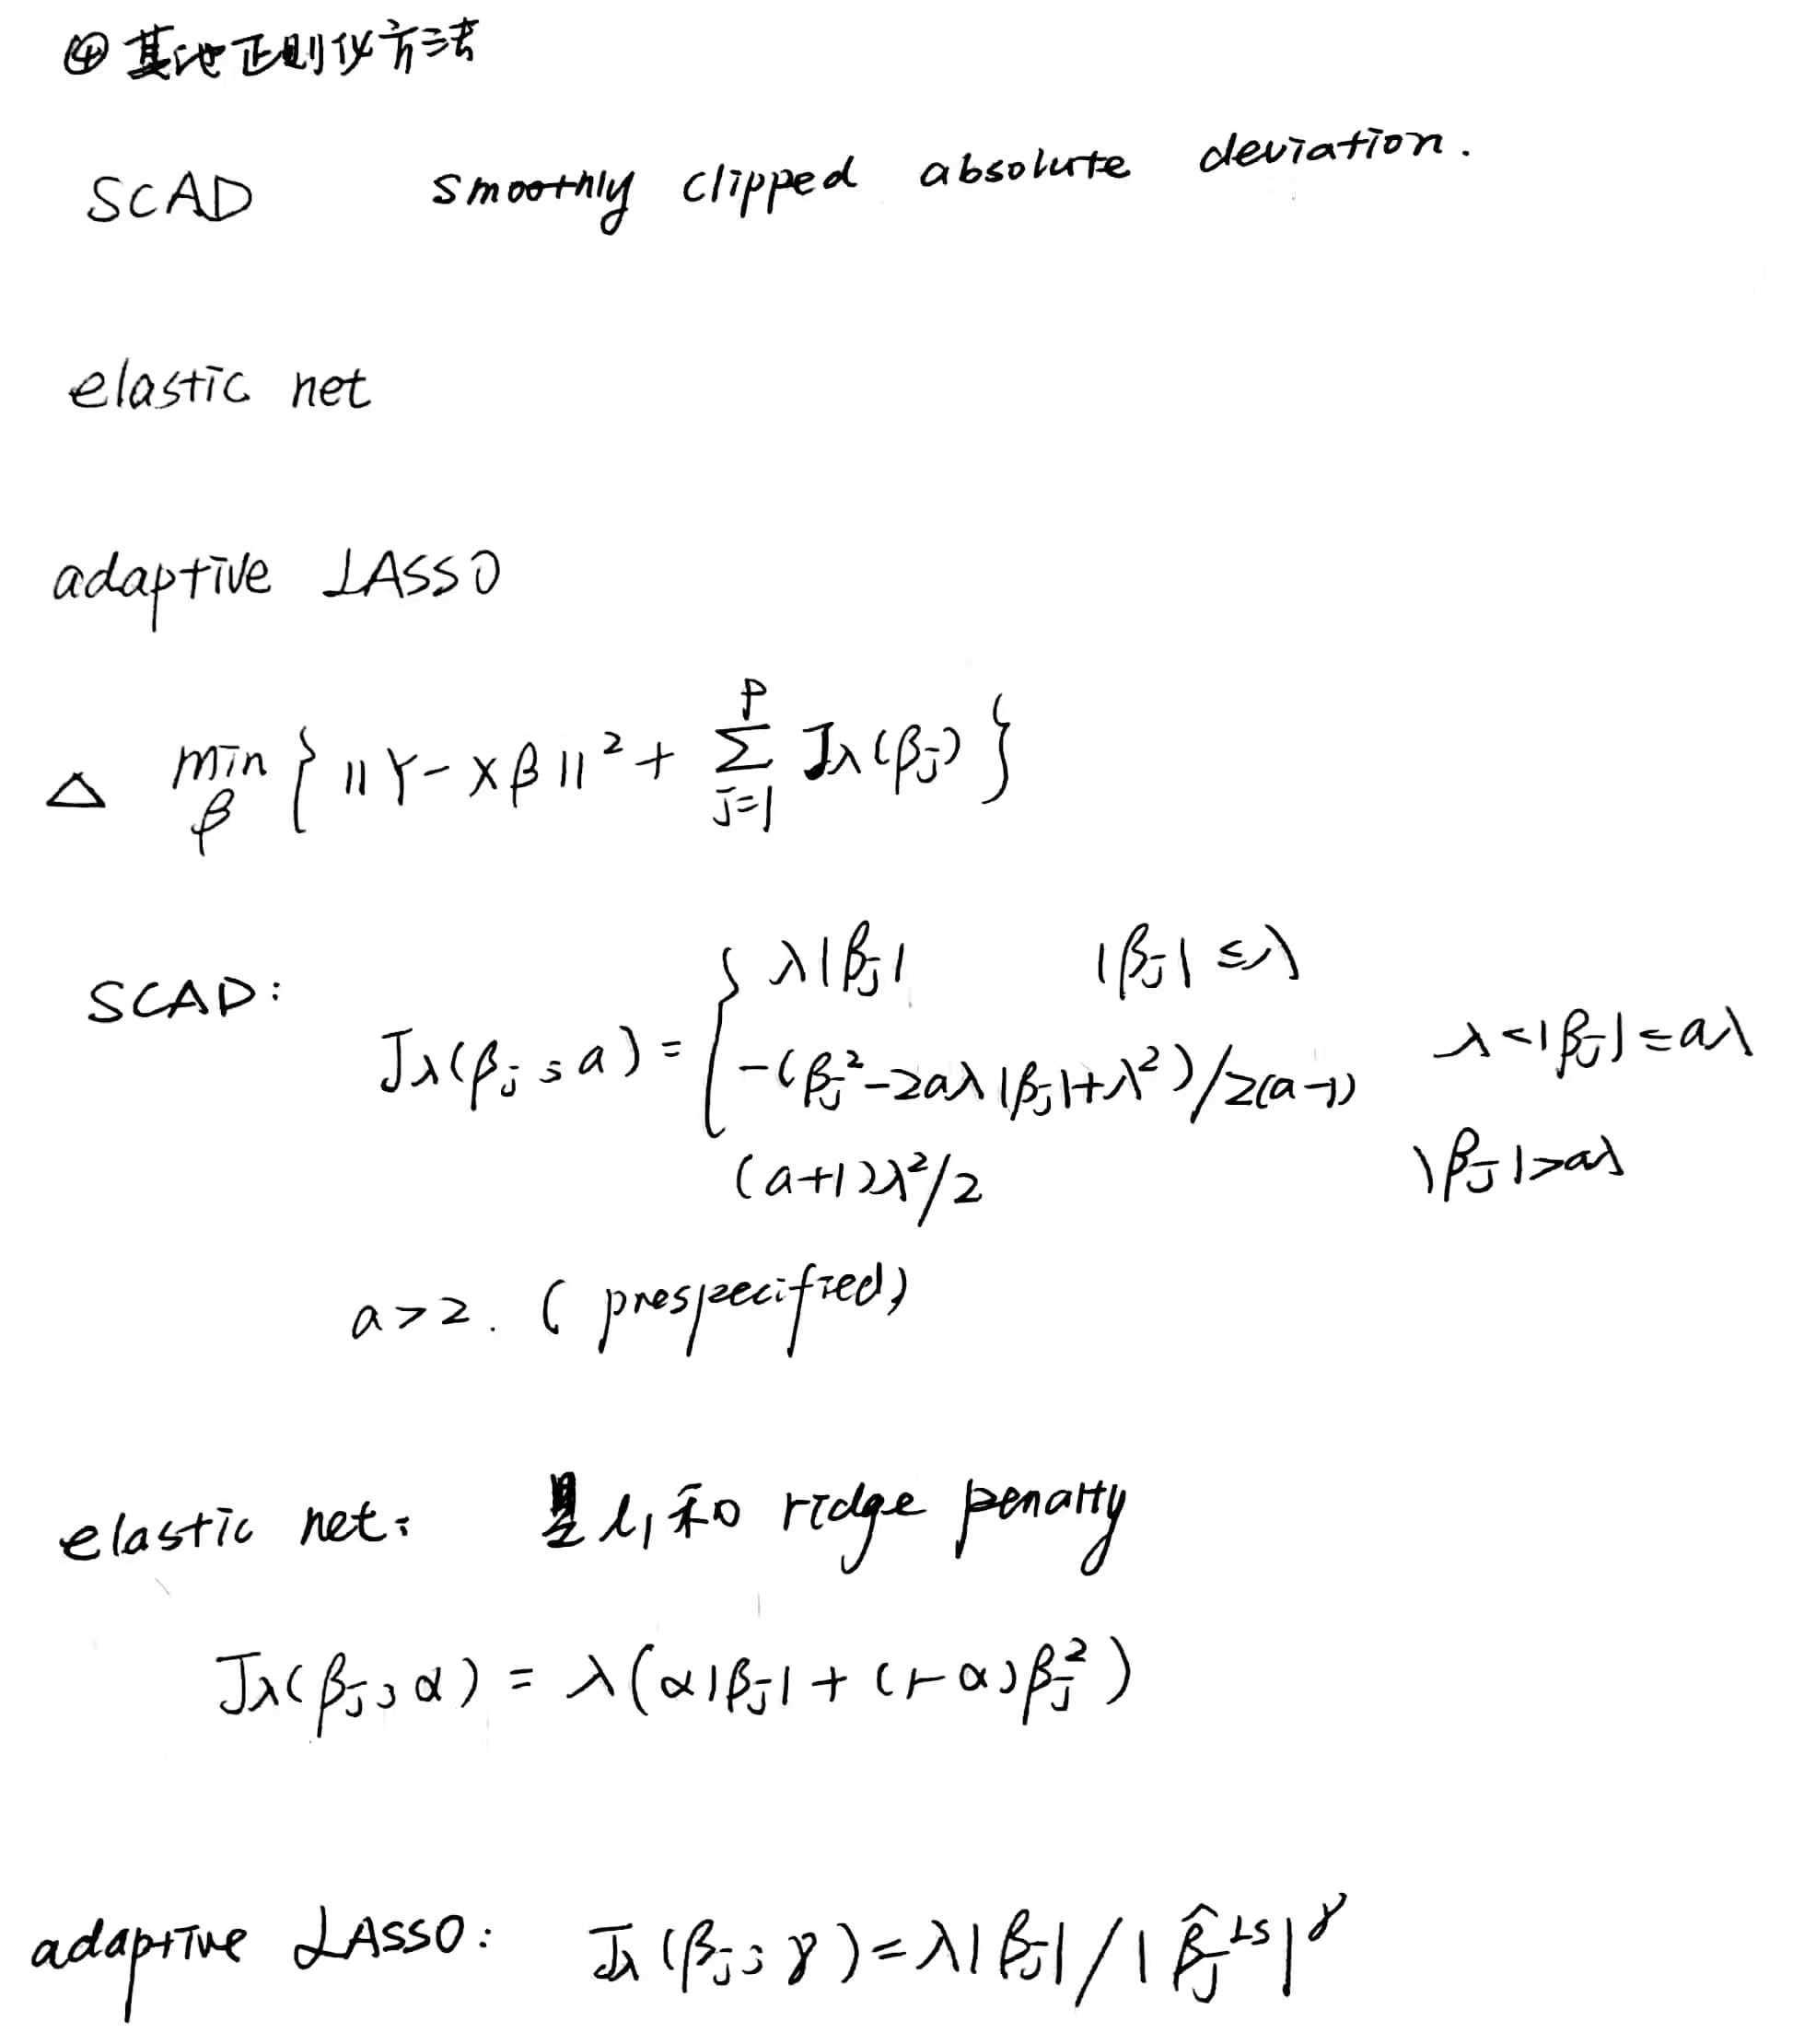 ④ 其他正则化方法
SCAD smoothly clipped absolute deviation.
elastic net
adaptive LASSO
△ min_β { ||Y - Xβ||² + Σ_{j=1}^{p} J_λ(β_j) }
SCAD: J_λ(β_j; a) = {
λ|β_j| |β_j| ≤ λ
-(β_j² - 2aλ|β_j| + λ²)/2(a-1) λ < |β_j| ≤ aλ
(a+1)λ²/2 |β_j| > aλ
a > 2. (prespecified)
elastic net: 是 l₁ 和 ridge penalty
J_λ(β_j; α) = λ(α|β_j| + (1-α)β_j²)
adaptive LASSO: J_λ(β_j; γ) = λ|β_j| / |β̂_j^{LS}|^γ